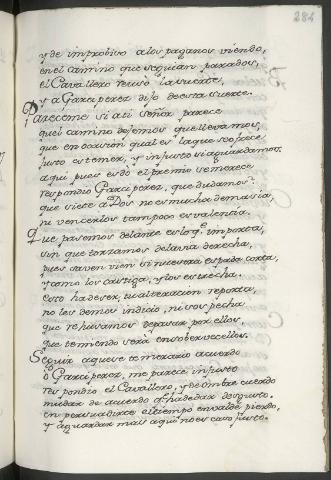 284
y de improbiso a los paganos viendo,
en el camino que seguian parados,
el Cavallero temio la suerte,
y a Garci perez dijo de esta suerte.
Pareceme si a ti señor parece
quel camino dejemos que llevamos
que en ocasion qual es la que se ofrece
justo es temer, y injusto si aguardamos.
aqui pues es do el premio se merece
respondio Garci perez, que dudamos?
que siete a Dos no es mucha demasia,
ni vencerlos tampoco es valentia.
Que pasemos delante es lo q̃ importa,
sin que torzamos de la via derecha,
pues saven vien si nuestra espada corta,
y como los castiga, y los estrecha.
esto ha de ser, tu alteracion reporta,
no les demos indicio, ni sospecha
que rehusamos de pasar por ellos,
que temiendo sera ensobervecellos.
Seguir aqueste temerario acuerdo
o Garci perez, me parece injusto
respondio el Cavallero, y de ombre cuerdo
mudar de acuerdo q̃ ha de dar desgusto.
en persuadirte el tiempo en valde pierdo,
y aguardar mas aqui no es caso justo.